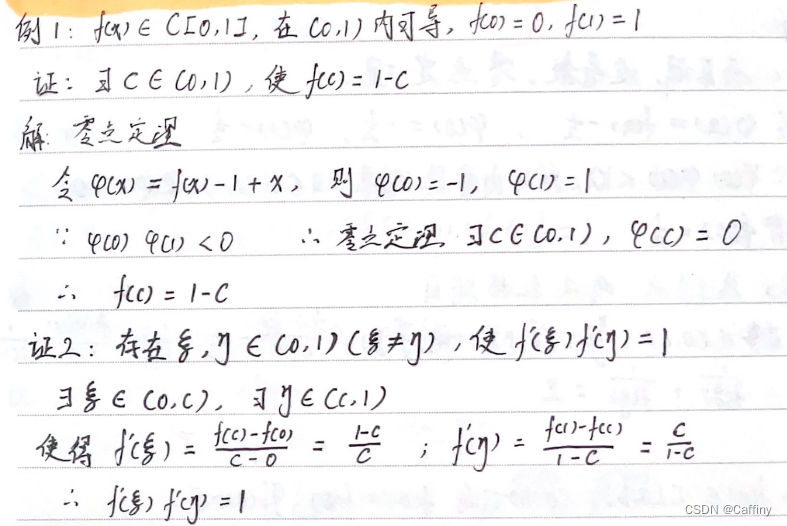 例1: f(x) ∈ C[0,1], 在 (0,1) 内可导, f(0)=0, f(1)=1
证: ∃ C ∈ (0,1), 使 f(c)=1-C
解: 零点定理
令 φ(x)=f(x)-1+x, 则 φ(0)=-1, φ(1)=1
∵ φ(0) φ(1)<0 ∴ 零点定理 ∃C∈(0,1), φ(c)=0
∴ f(c)=1-C
证2: 存在 ξ, η ∈ (0,1) (ξ≠η), 使 f'(ξ)f'(η)=1
∃ ξ ∈ (0,C), ∃ η ∈ (C,1)
使得 f'(ξ) = (f(c)-f(0))/(C-0) = (1-C)/C ; f'(η) = (f(1)-f(c))/(1-C) = C/(1-C)
∴ f'(ξ) f'(η)=1
CSDN @Caffiny